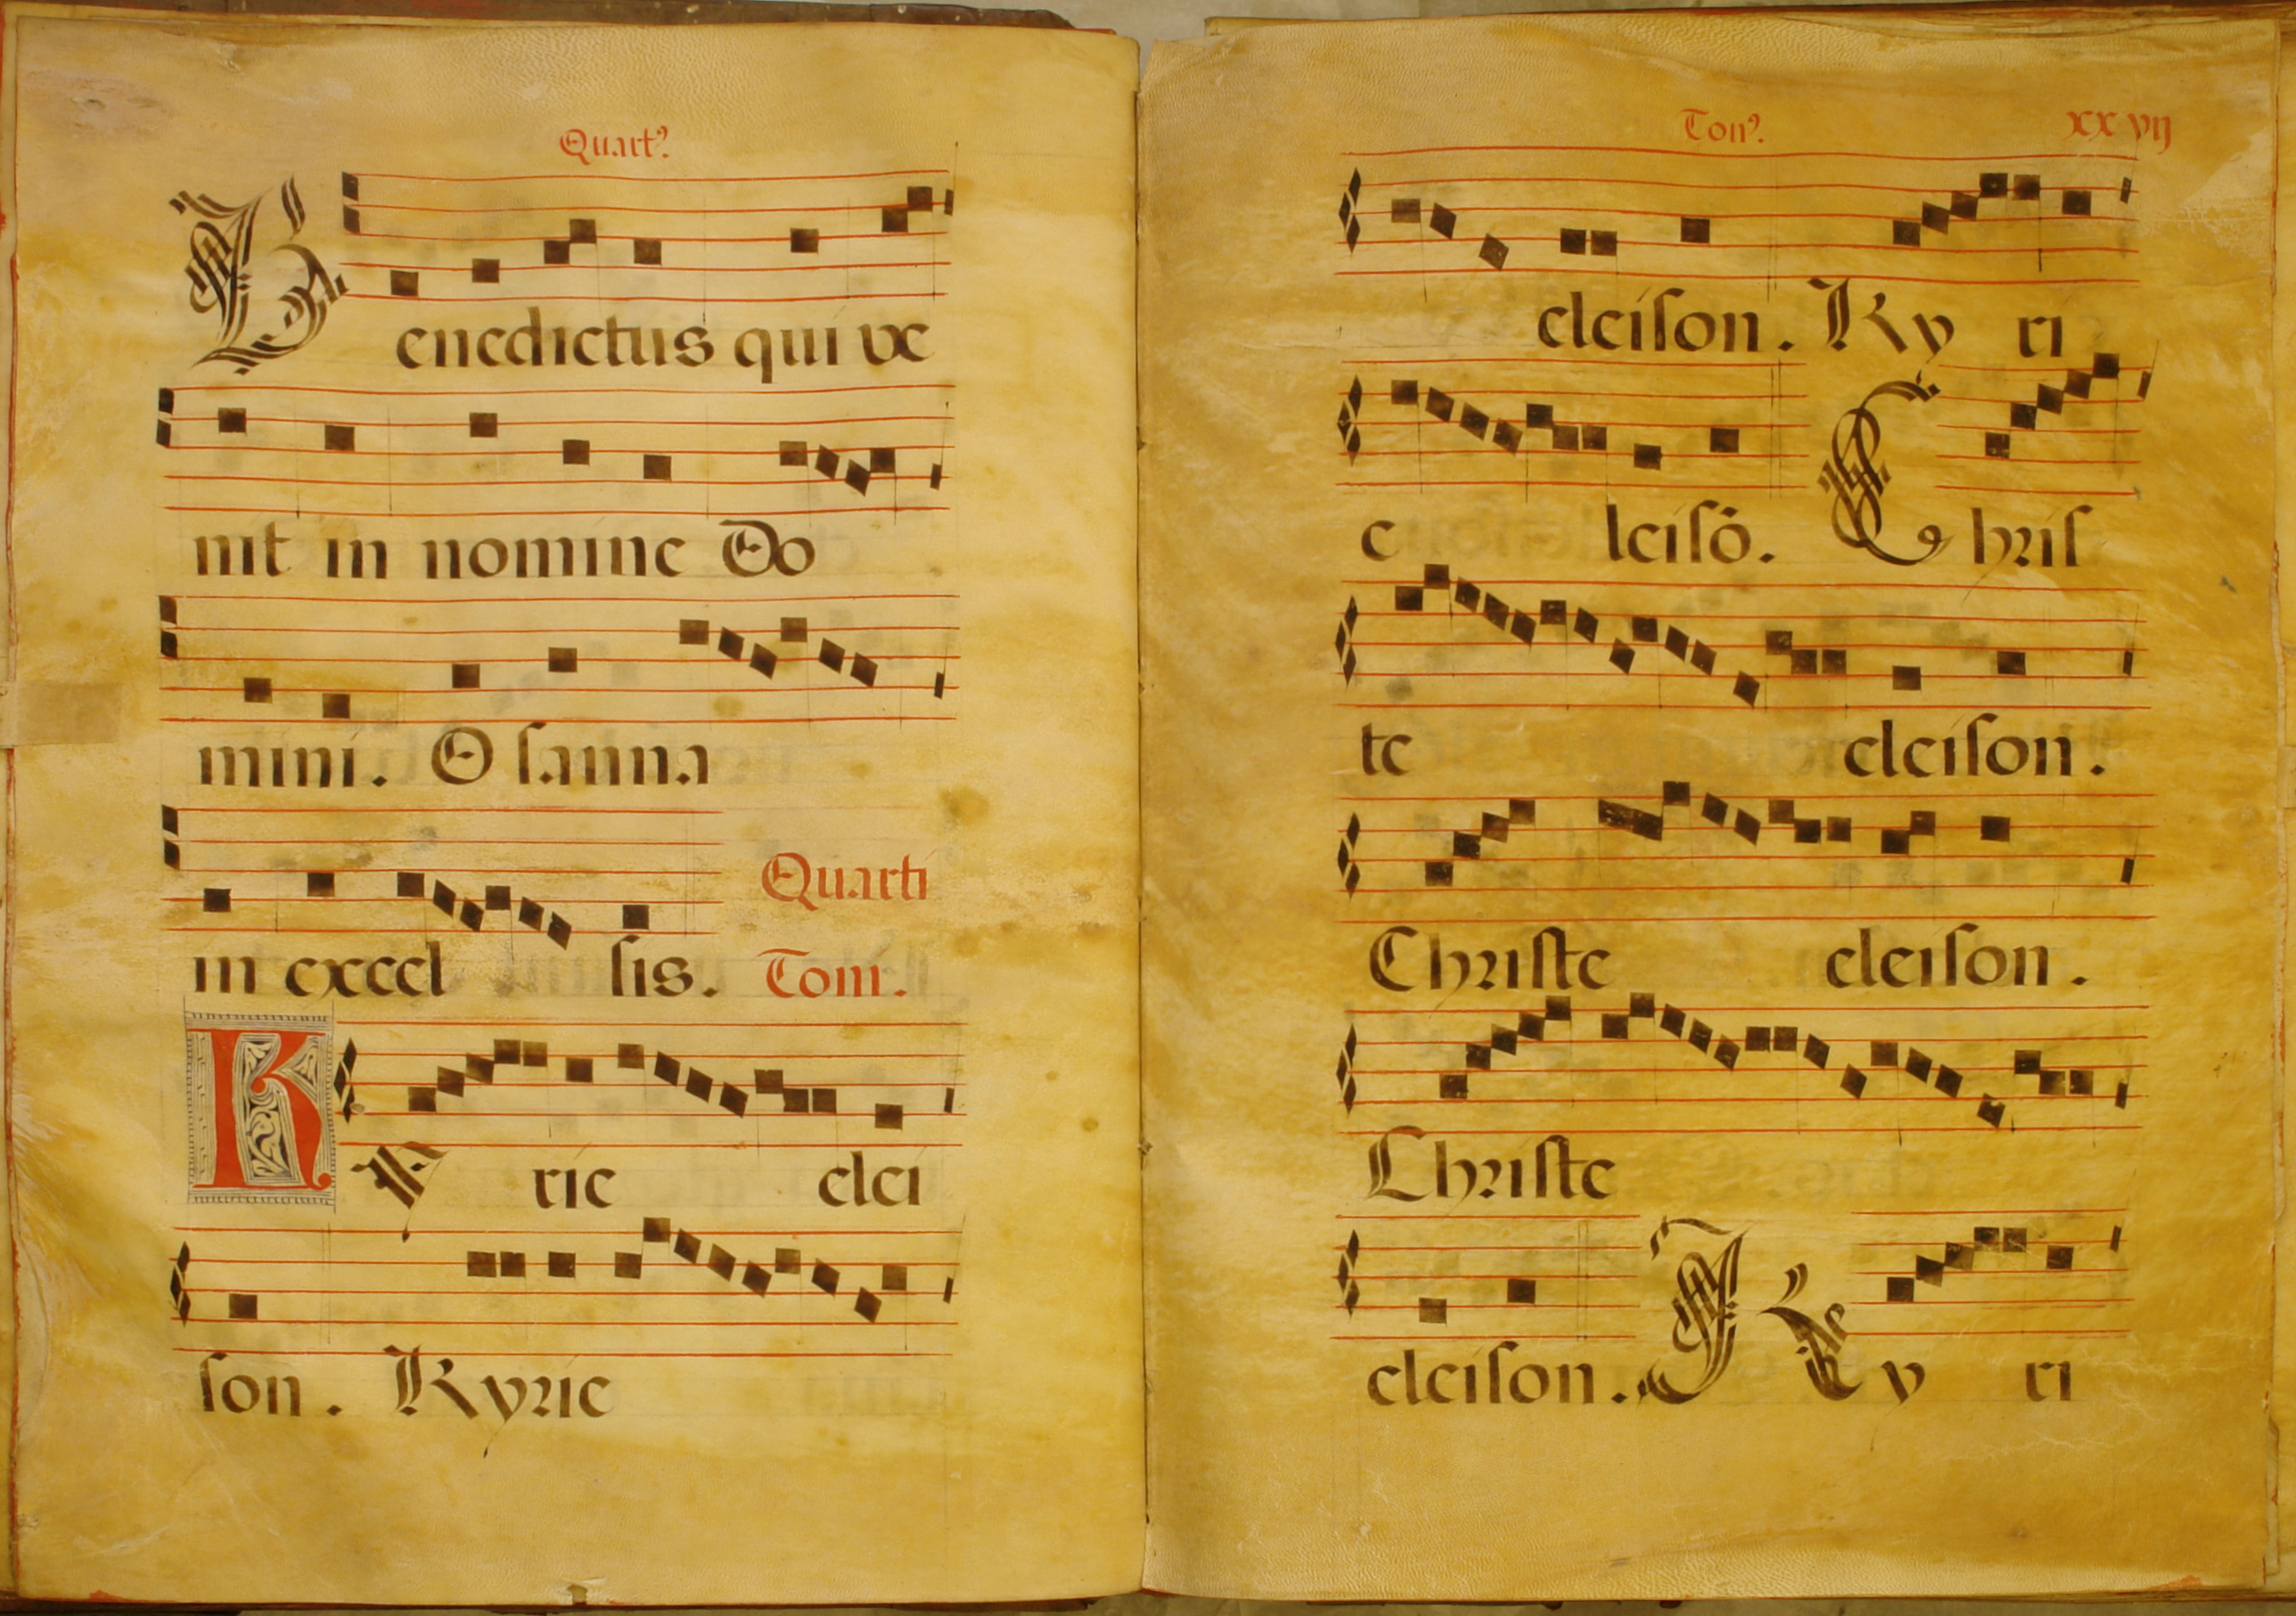 Quartꝰ.
Benedictus qui ve
nit in nomine Do
mini. O sanna
in excel sis. Quarti
Toni.
Ky rie elei
son. Kyrie
Tonꝰ. xxvij
eleison. Ky ri
e leisō. Chris
te eleison.
Christe eleison.
Christe
eleison. Ky ri